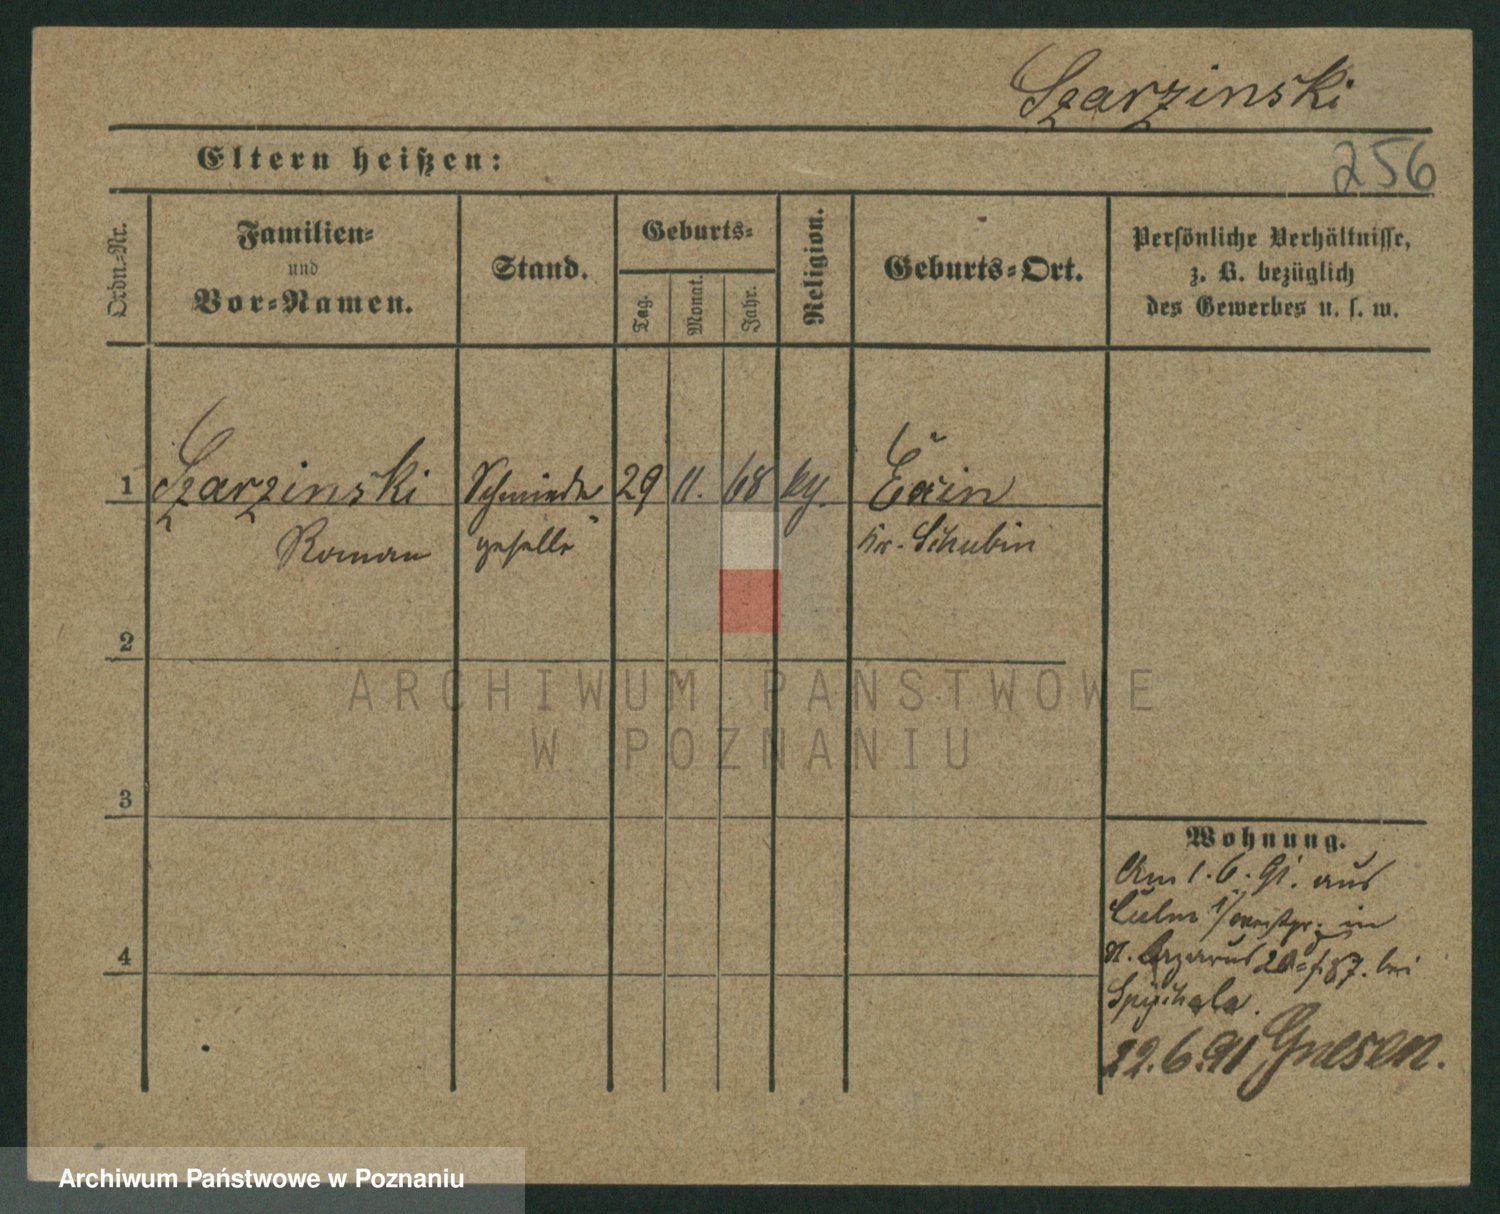 Szarzinski
Eltern heißen:
256
Ordn.-Nr.
Familien-
und
Vor-Namen.
Stand.
Geburts-
Tag.
Monat.
Jahr.
Religion.
Geburts-Ort.
Persönliche Verhältnisse,
z. B. bezüglich
des Gewerbes u. s. w.
1 Szarzinski Schmiede 29 11. 68 Exin
Roman geselle Kr. Schubin
2
3
4
Wohnung.
Am 1. 6. 91. aus
Culm in
St. Lazarus bei
Spychala.
22.6.91 Gnesen.
ARCHIWUM PAŃSTWOWE
W POZNANIU
Archiwum Państwowe w Poznaniu